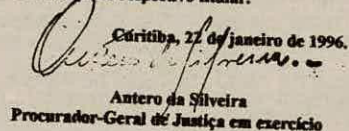 Curitiba, 22 de janeiro de 1996.
Antero da Silveira
Procurador-Geral de Justiça em exercício